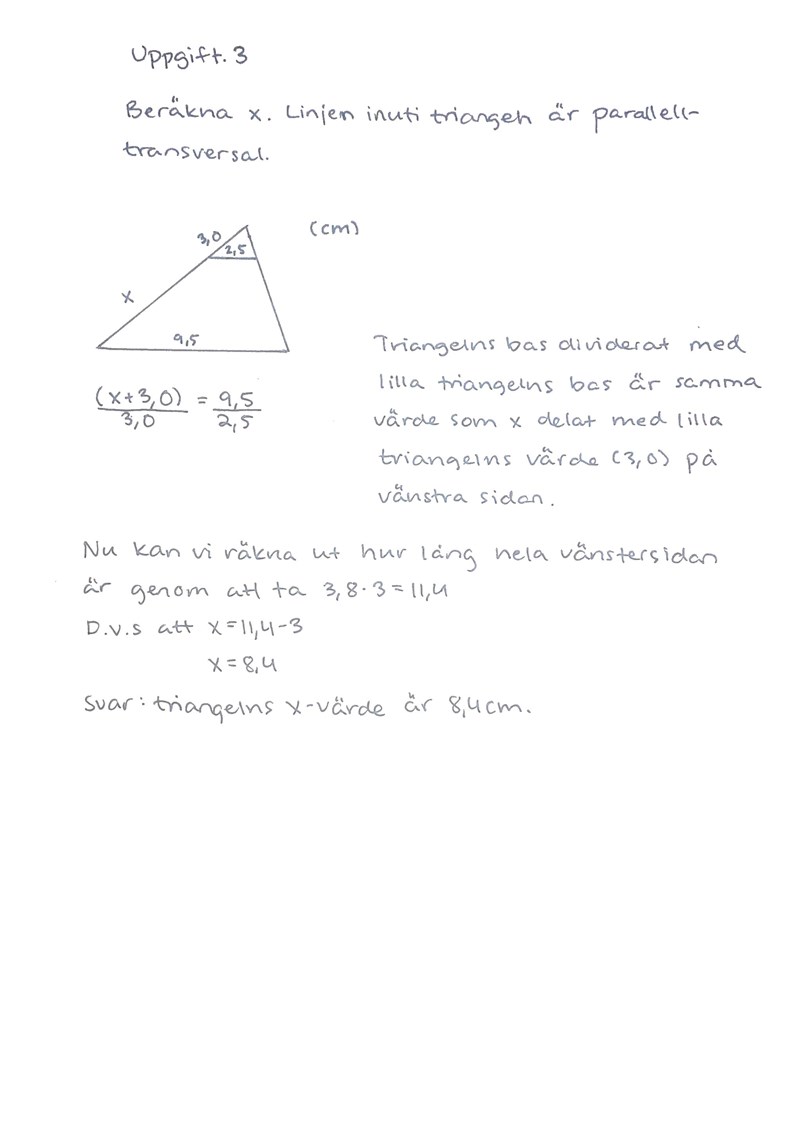 Uppgift. 3
Beräkna x. Linjen inuti triangeln är parallell-
transversal.
(cm)
3,0
2,5
x
9,5
(x+3,0) = 9,5
3,0 2,5
Triangelns bas dividerat med
lilla triangelns bas är samma
värde som x delat med lilla
triangelns värde (3,0) på
vänstra sidan.
Nu kan vi räkna ut hur lång hela vänstersidan
är genom att ta 3,8·3=11,4
D.v.s att x=11,4-3
x=8,4
Svar: triangelns x-värde är 8,4cm.